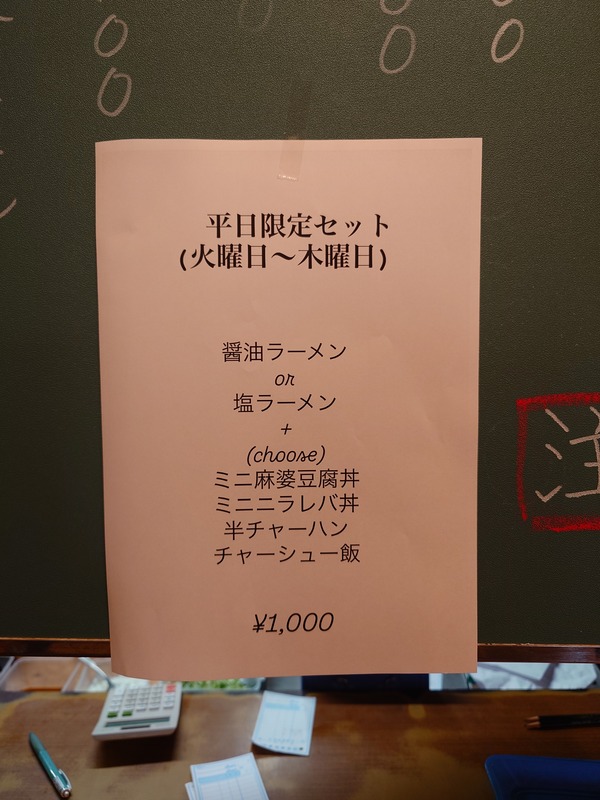 平日限定セット
(火曜日～木曜日)
醤油ラーメン
or
塩ラーメン
+
(choose)
ミニ麻婆豆腐丼
ミニニラレバ丼
半チャーハン
チャーシュー飯
¥1,000
注